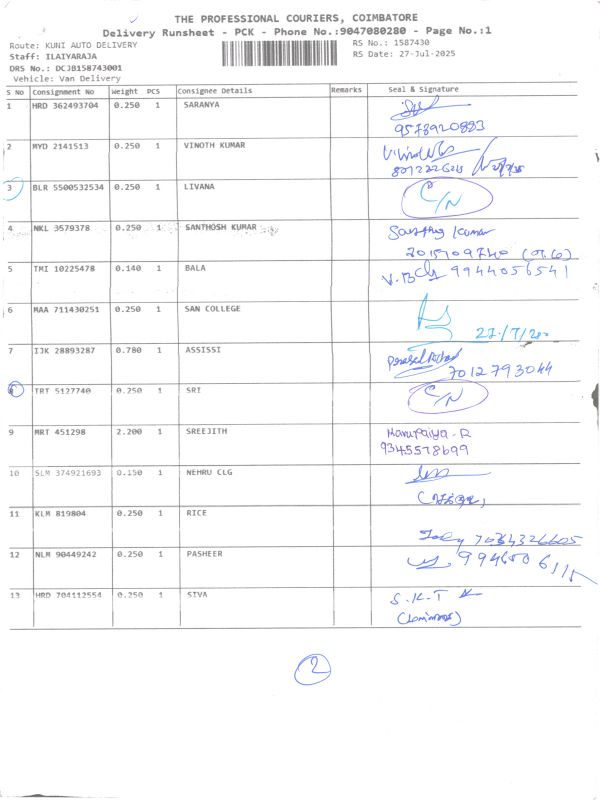 THE PROFESSIONAL COURIERS, COIMBATORE
Delivery Runsheet - PCK - Phone No.:9047080280 - Page No.:1
Route: KUNI AUTO DELIVERY RS No.: 1587430
Staff: ILAIYARAJA RS Date: 27-Jul-2025
DRS No.: DCJB158743001
Vehicle: Van Delivery
S No Consignment No Weight PCS Consignee Details Remarks Seal & Signature
1 HRD 362493704 0.250 1 SARANYA
9578920883
2 MYD 2141513 0.250 1 VINOTH KUMAR
3 BLR 5500532534 0.250 1 LIVANA C/N
4 NKL 3579378 0.250 1 SANTHOSH KUMAR
Kumar
5 TMI 10225478 0.140 1 BALA 9944056541
6 MAA 711430251 0.250 1 SAN COLLEGE
7 IJK 28893287 0.780 1 ASSISSI
7012793044
8 TRT 5127740 0.250 1 SRI C/N
9 MRT 451298 2.200 1 SREEJITH Karupaiya - R
9345578699
10 SLM 374921693 0.150 1 NEHRU CLG
11 KLM 819804 0.250 1 RICE
12 NLM 90449242 0.250 1 PASHEER
13 HRD 704112554 0.250 1 SIVA S.K.T
2